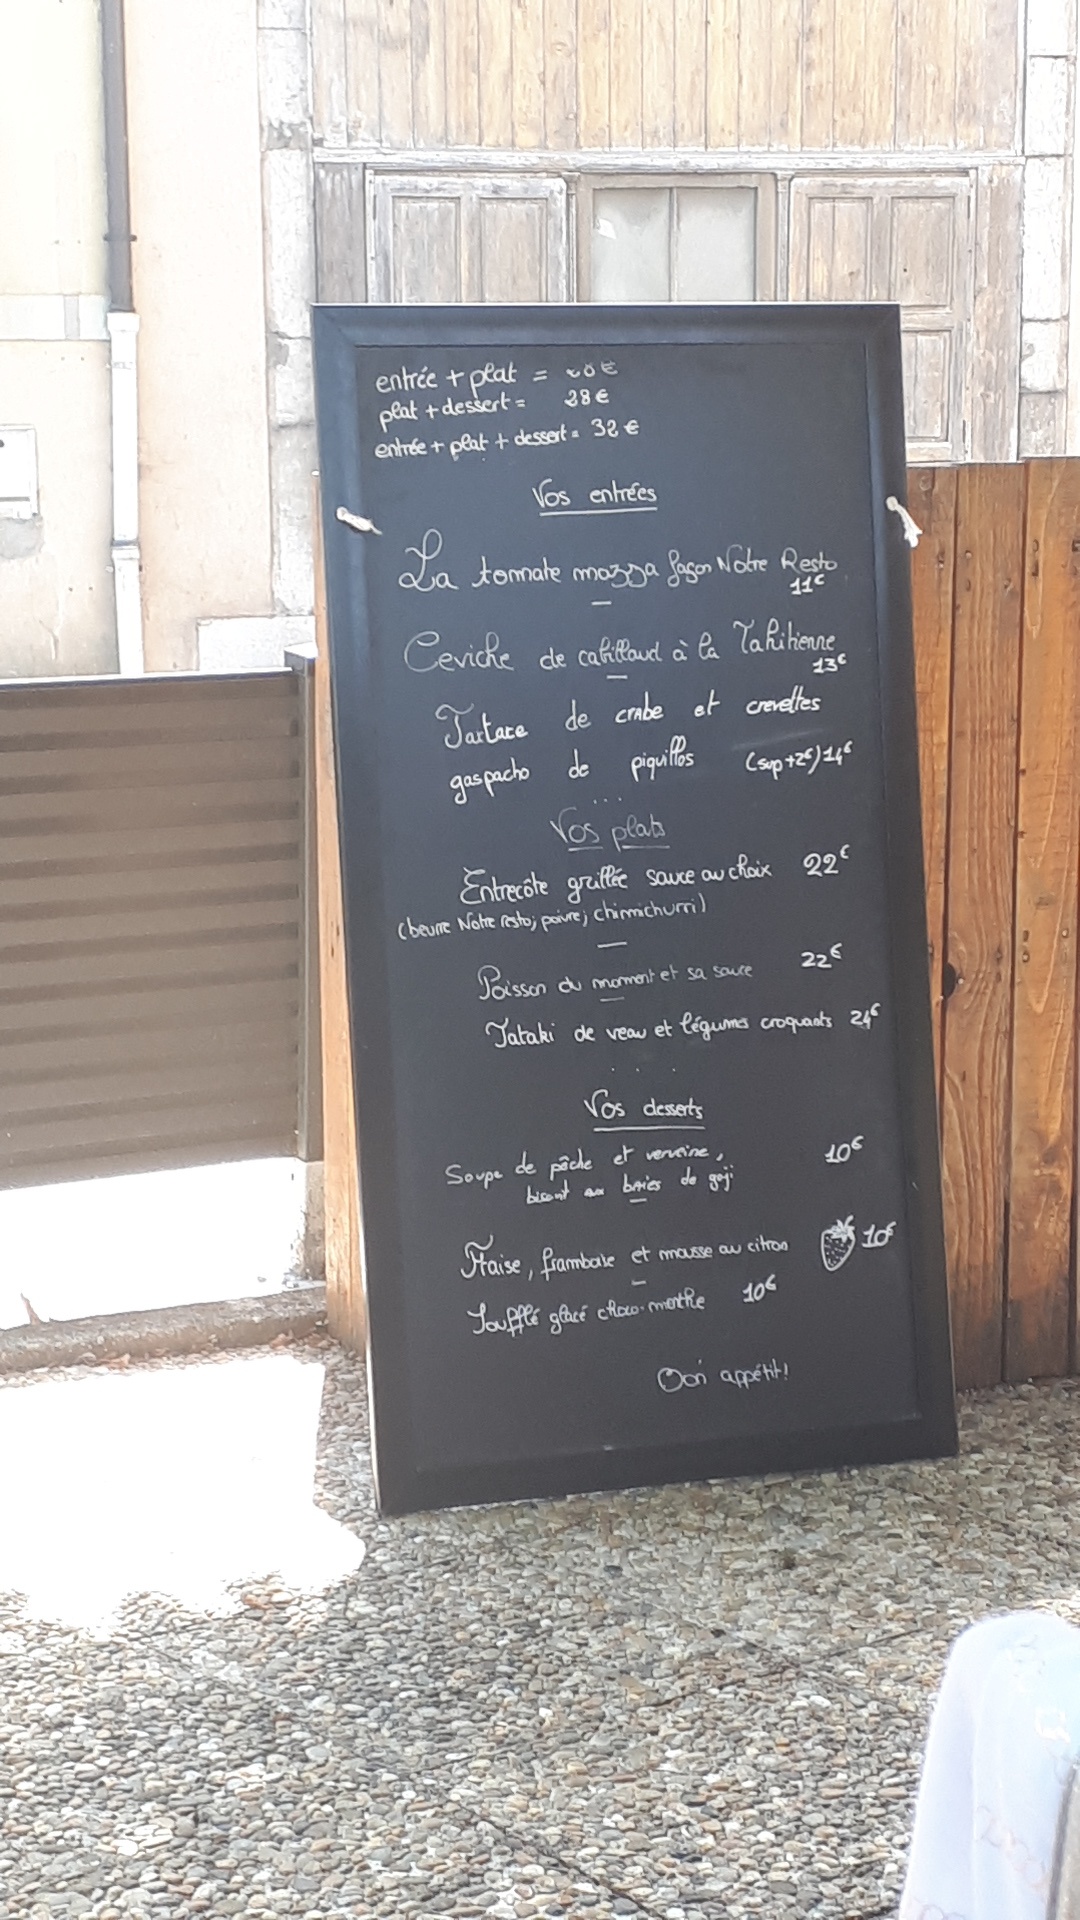 entrée + plat = 28€
plat + dessert = 28€
entrée + plat + dessert = 32€
Vos entrées
La tomate mozza façon Notre Resto
11€
Ceviche de cabillaud à la Tahitienne
13€
Tartare de crabe et crevettes
gaspacho de piquillos (sup +2€) 14€
...
Vos plats
Entrecôte grillée sauce au choix 22€
(beurre Notre resto; poivre; chimichurri)
Poisson du moment et sa sauce 22€
Tataki de veau et légumes croquants 24€
...
Vos desserts
Soupe de pêche et verveine, 10€
aux baies de goji
Fraise, framboise et mousse au citron 10€
Soufflé glacé choco-menthe 10€
Bon appétit!